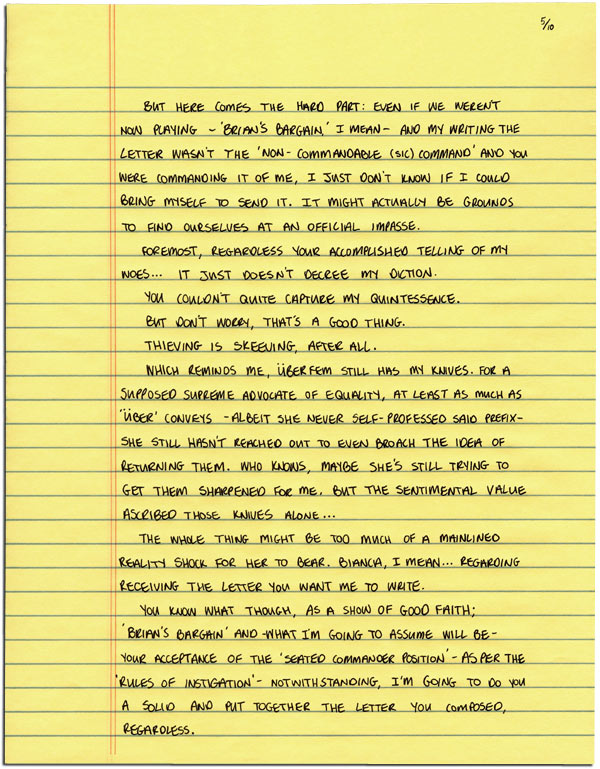 5/10
BUT HERE COMES THE HARD PART: EVEN IF WE WEREN'T
NOW PLAYING - 'BRIAN'S BARGAIN' I MEAN - AND MY WRITING THE
LETTER WASN'T THE 'NON-COMMANDABLE (SIC) COMMAND' AND YOU
WERE COMMANDING IT OF ME, I JUST DON'T KNOW IF I COULD
BRING MYSELF TO SEND IT. IT MIGHT ACTUALLY BE GROUNDS
TO FIND OURSELVES AT AN OFFICIAL IMPASSE.
FOREMOST, REGARDLESS YOUR ACCOMPLISHED TELLING OF MY
WOES... IT JUST DOESN'T DECREE MY DICTION.
YOU COULDN'T QUITE CAPTURE MY QUINTESSENCE.
BUT DON'T WORRY, THAT'S A GOOD THING.
THIEVING IS SKEEVING, AFTER ALL.
WHICH REMINDS ME, ÜBERFEM STILL HAS MY KNIVES. FOR A
SUPPOSED SUPREME ADVOCATE OF EQUALITY, AT LEAST AS MUCH AS
'ÜBER' CONVEYS -ALBEIT SHE NEVER SELF-PROFESSED SAID PREFIX-
SHE STILL HASN'T REACHED OUT TO EVEN BROACH THE IDEA OF
RETURNING THEM. WHO KNOWS, MAYBE SHE'S STILL TRYING TO
GET THEM SHARPENED FOR ME. BUT THE SENTIMENTAL VALUE
ASCRIBED THOSE KNIVES ALONE...
THE WHOLE THING MIGHT BE TOO MUCH OF A MAINLINED
REALITY SHOCK FOR HER TO BEAR. BIANCA, I MEAN... REGARDING
RECEIVING THE LETTER YOU WANT ME TO WRITE.
YOU KNOW WHAT THOUGH, AS A SHOW OF GOOD FAITH;
'BRIAN'S BARGAIN' AND -WHAT I'M GOING TO ASSUME WILL BE-
YOUR ACCEPTANCE OF THE 'SEATED COMMANDER POSITION' - AS PER THE
'RULES OF INSTIGATION' - NOTWITHSTANDING, I'M GOING TO DO YOU
A SOLID AND PUT TOGETHER THE LETTER YOU COMPOSED,
REGARDLESS.